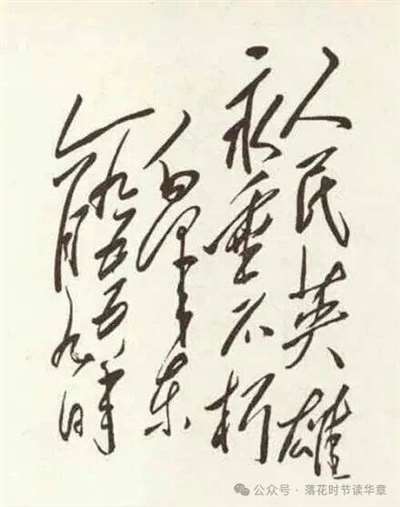 人民英雄
永垂不朽
毛泽东
一九五五年
六月九日
公众号·落花时节读华章